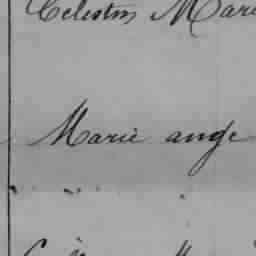 Celestin Mari
Marie ange